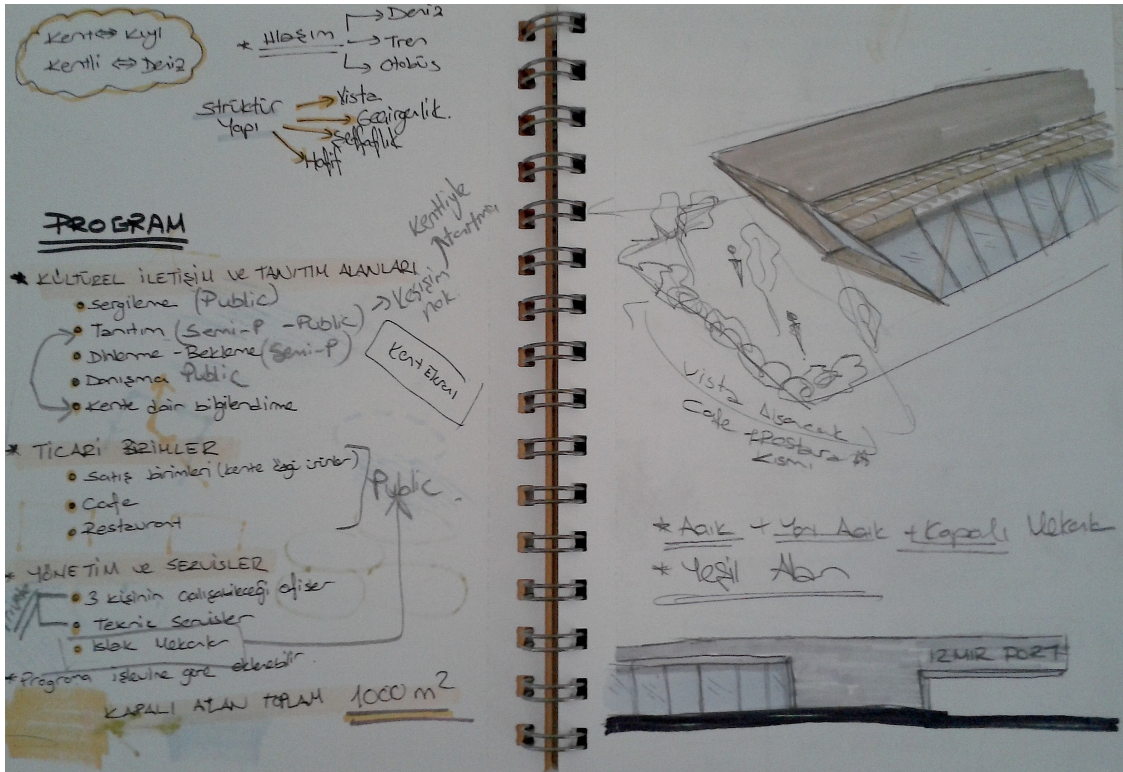 Kent ⇔ Kıyı
Kentli ⇔ Deniz
* Ulaşım
→ Deniz
→ Tren
→ Otobüs
Strüktür
Yapı
→ Vista
→ Geçirgenlik.
→ Şeffaflık
→ Hafif
PROGRAM
* KÜLTÜREL İLETİŞİM ve TANITIM ALANLARI
• Sergileme (Public)
• Tanıtım (Semi-P - Public) → Kesişim
nok.
Kentliyle
• Dinlenme - Bekleme (Semi-P)
• Danışma Public
• Kente dair bilgilendirme
Kent Ekranı
* TİCARİ BİRİMLER
• Satış birimleri (kente özgü ürünler)
• Cafe
• Restaurant
Public.
* YÖNETİM ve SERVİSLER
• 3 kişinin çalışabileceği ofisler
• Teknik Servisler
• Islak Mekanlar
* Programa işlevine göre eklenebilir.
KAPALI ALAN TOPLAM 1000 m²
Vista Alsancak
Cafe +
Kısmı
* Açık + Yarı Açık + Kapalı Mekan
* Yeşil Alan
IZMIR PORT